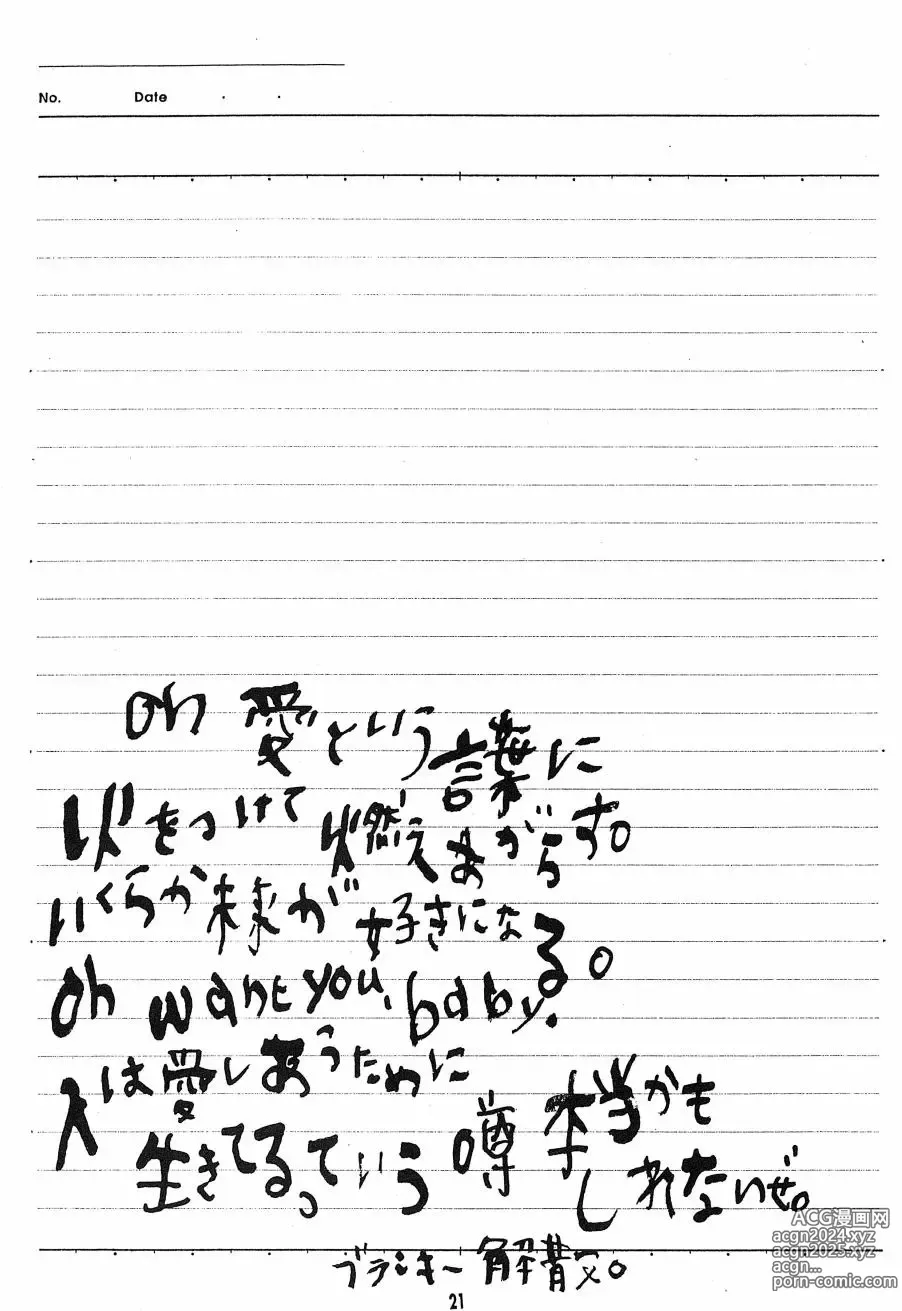 No. Date . .
Oh 愛という言葉に
火をつけて燃えあがらす。
いくらか様が好きになる。
Oh want you, baby.
人は愛しあうために
生きてるっていう噂 本当かも
しれないぜ。
ブランキー解散。
21
ACG漫画网
acgn2024.xyz
acgn2025.xyz
acgn...
porn-comic.com